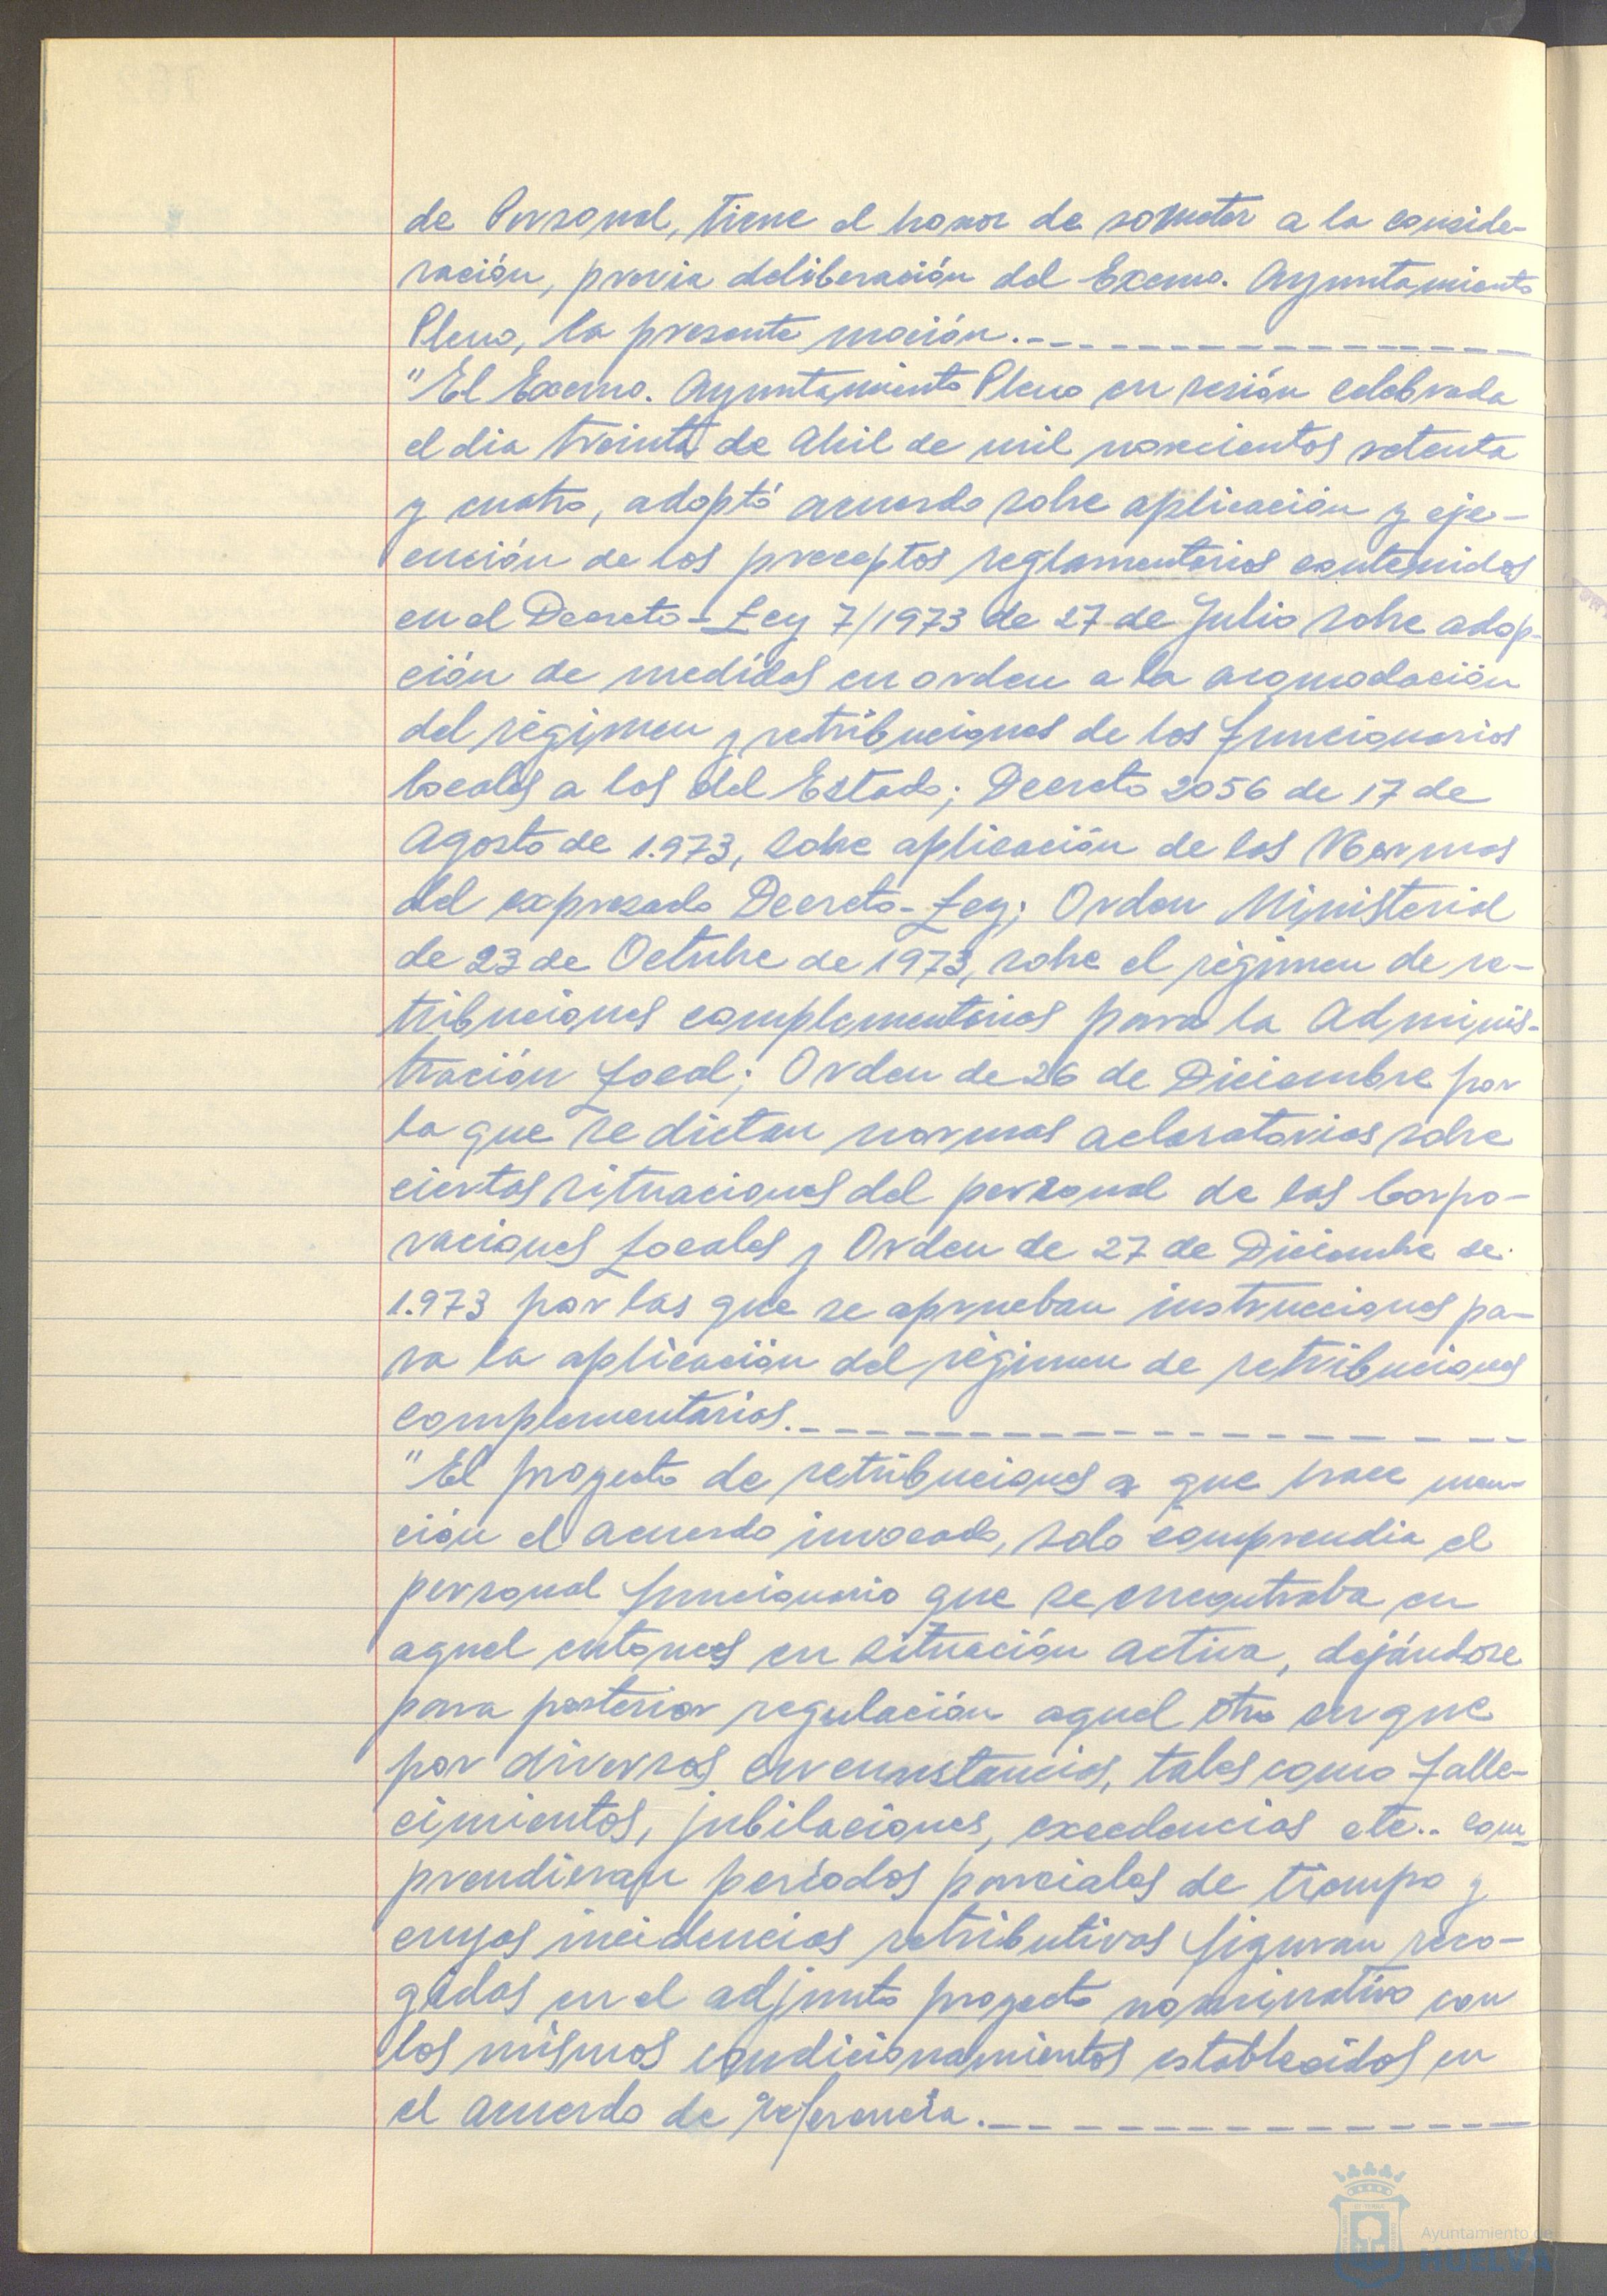 de Personal, tiene el honor de someter a la conside-
ración, previa deliberación del Excmo. Ayuntamiento
Pleno, la presente moción.-----------------
"El Excmo. Ayuntamiento Pleno en sesión celebrada
el dia treinta de Abril de mil novecientos setenta
y cuatro, adoptó acuerdo sobre aplicación y eje-
cución de los preceptos reglamentarios contenidos
en el Decreto-Ley 7/1973 de 27 de Julio sobre adop-
ción de medidas en orden a la acomodación
del régimen y retribuciones de los funcionarios
locales a los del Estado; Decreto 2056 de 17 de
Agosto de 1.973, sobre aplicación de las Normas
del expresado Decreto-Ley; Orden Ministerial
de 23 de Octubre de 1973, sobre el régimen de re-
tribuciones complementarias para la Adminis-
tración Local; Orden de 26 de Diciembre por
la que se dictan normas aclaratorias sobre
ciertas situaciones del personal de las Corpo-
raciones Locales y Orden de 27 de Diciembre de
1.973 por las que se aprueban instrucciones pa-
ra la aplicación del régimen de retribuciones
complementarias.---------------------
"El proyecto de retribuciones a que hace men-
ción el acuerdo invocado, solo comprendia el
personal funcionario que se encontraba en
aquel entonces en situación activa, dejándose
para posterior regulación aquel otro en que
por diversas circunstancias, tales como falle-
cimientos, jubilaciones, excedencias etc.. com-
prendieran períodos parciales de tiempo y
cuyas incidencias retributivas figuran reco-
gidas en el adjunto proyecto nominativo con
los mismos condicionamientos establecidos en
el acuerdo de referencia.----------------
Ayuntamiento de
HUELVA